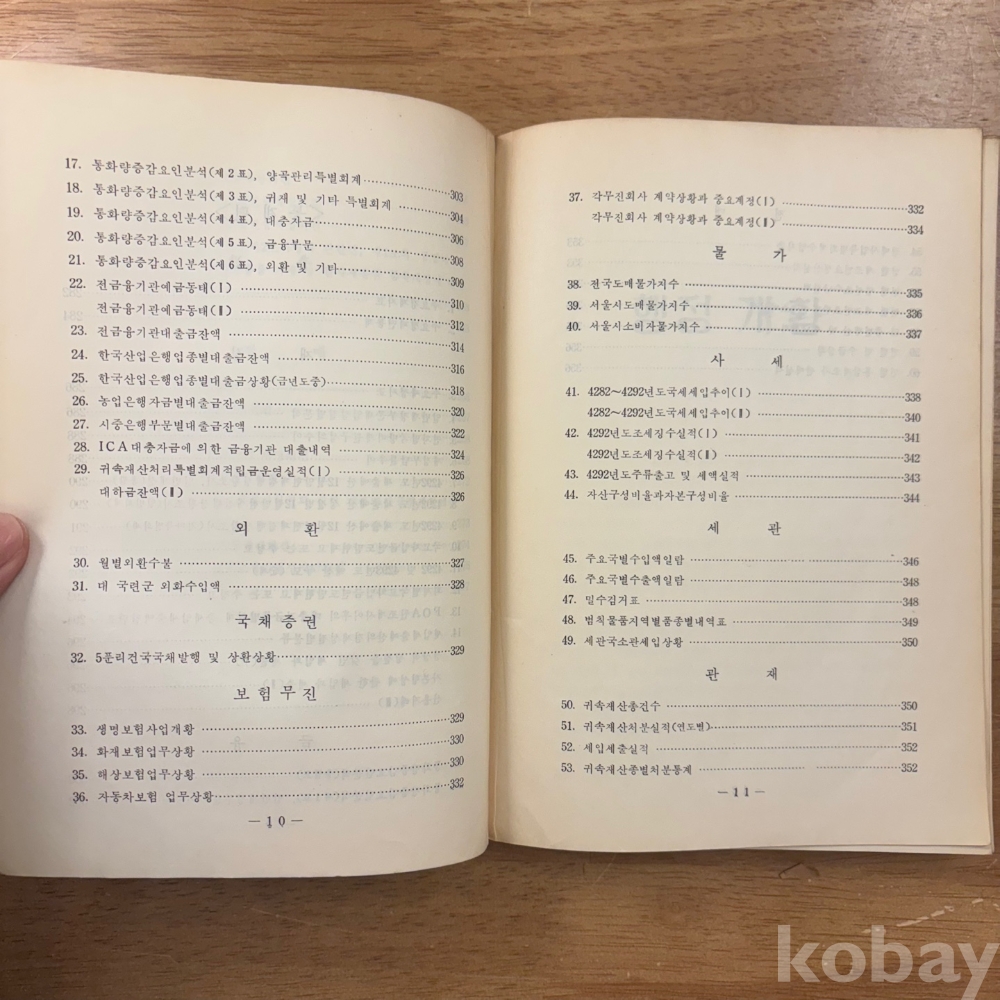 17. 통화량증감요인분석(제2표), 양곡관리특별회계 303
18. 통화량증감요인분석(제3표), 귀재 및 기타 특별회계 304
19. 통화량증감요인분석(제4표), 대충자금 306
20. 통화량증감요인분석(제5표), 금융부문 308
21. 통화량증감요인분석(제6표), 외환 및 기타 309
22. 전금융기관예금동태(Ⅰ) 310
전금융기관예금동태(Ⅱ) 312
23. 전금융기관대출금잔액 314
24. 한국산업은행업종별대출금잔액 316
25. 한국산업은행업종별대출금상황(금년도중) 318
26. 농업은행자금별대출금잔액 320
27. 시중은행부문별대출금잔액 322
28. ICA대충자금에 의한 금융기관 대출내역 324
29. 귀속재산처리특별회계적립금운영실적(Ⅰ) 326
대하금잔액(Ⅱ) 326
외 환
30. 월별외환수불 327
31. 대 국련군 외화수입액 328
국채증권
32. 5푼리건국국채발행 및 상환상황 329
보험무진
33. 생명보험사업개황 329
34. 화재보험업무상황 330
35. 해상보험업무상황 330
36. 자동차보험 업무상황 332
— 10 —
37. 각무진회사 계약상황과 중요계정(Ⅰ) 332
각무진회사 계약상황과 중요계정(Ⅱ) 334
물 가
38. 전국도매물가지수 335
39. 서울시도매물가지수 336
40. 서울시소비자물가지수 337
사 세
41. 4282~4292년도국세세입추이(Ⅰ) 338
4282~4292년도국세세입추이(Ⅱ) 340
42. 4292년도조세징수실적(Ⅰ) 341
4292년도조세징수실적(Ⅱ) 342
43. 4292년도주류출고 및 세액실적 343
44. 자산구성비율과자본구성비율 344
세 관
45. 주요국별수입액일람 346
46. 주요국별수출액일람 348
47. 밀수검거표 348
48. 범칙물품지역별품종별내역표 349
49. 세관국소관세입상황 350
관 재
50. 귀속재산총건수 350
51. 귀속재산처분실적(연도별) 351
52. 세입세출실적 352
53. 귀속재산종별처분통계 352
— 11 —
kobay